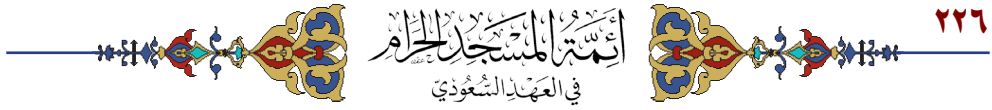 ٢٢٦
أَئِمَّةُ المَسْجِدِ الحَرَامِ
فِي العَهْدِ السُّعُودِيِّ